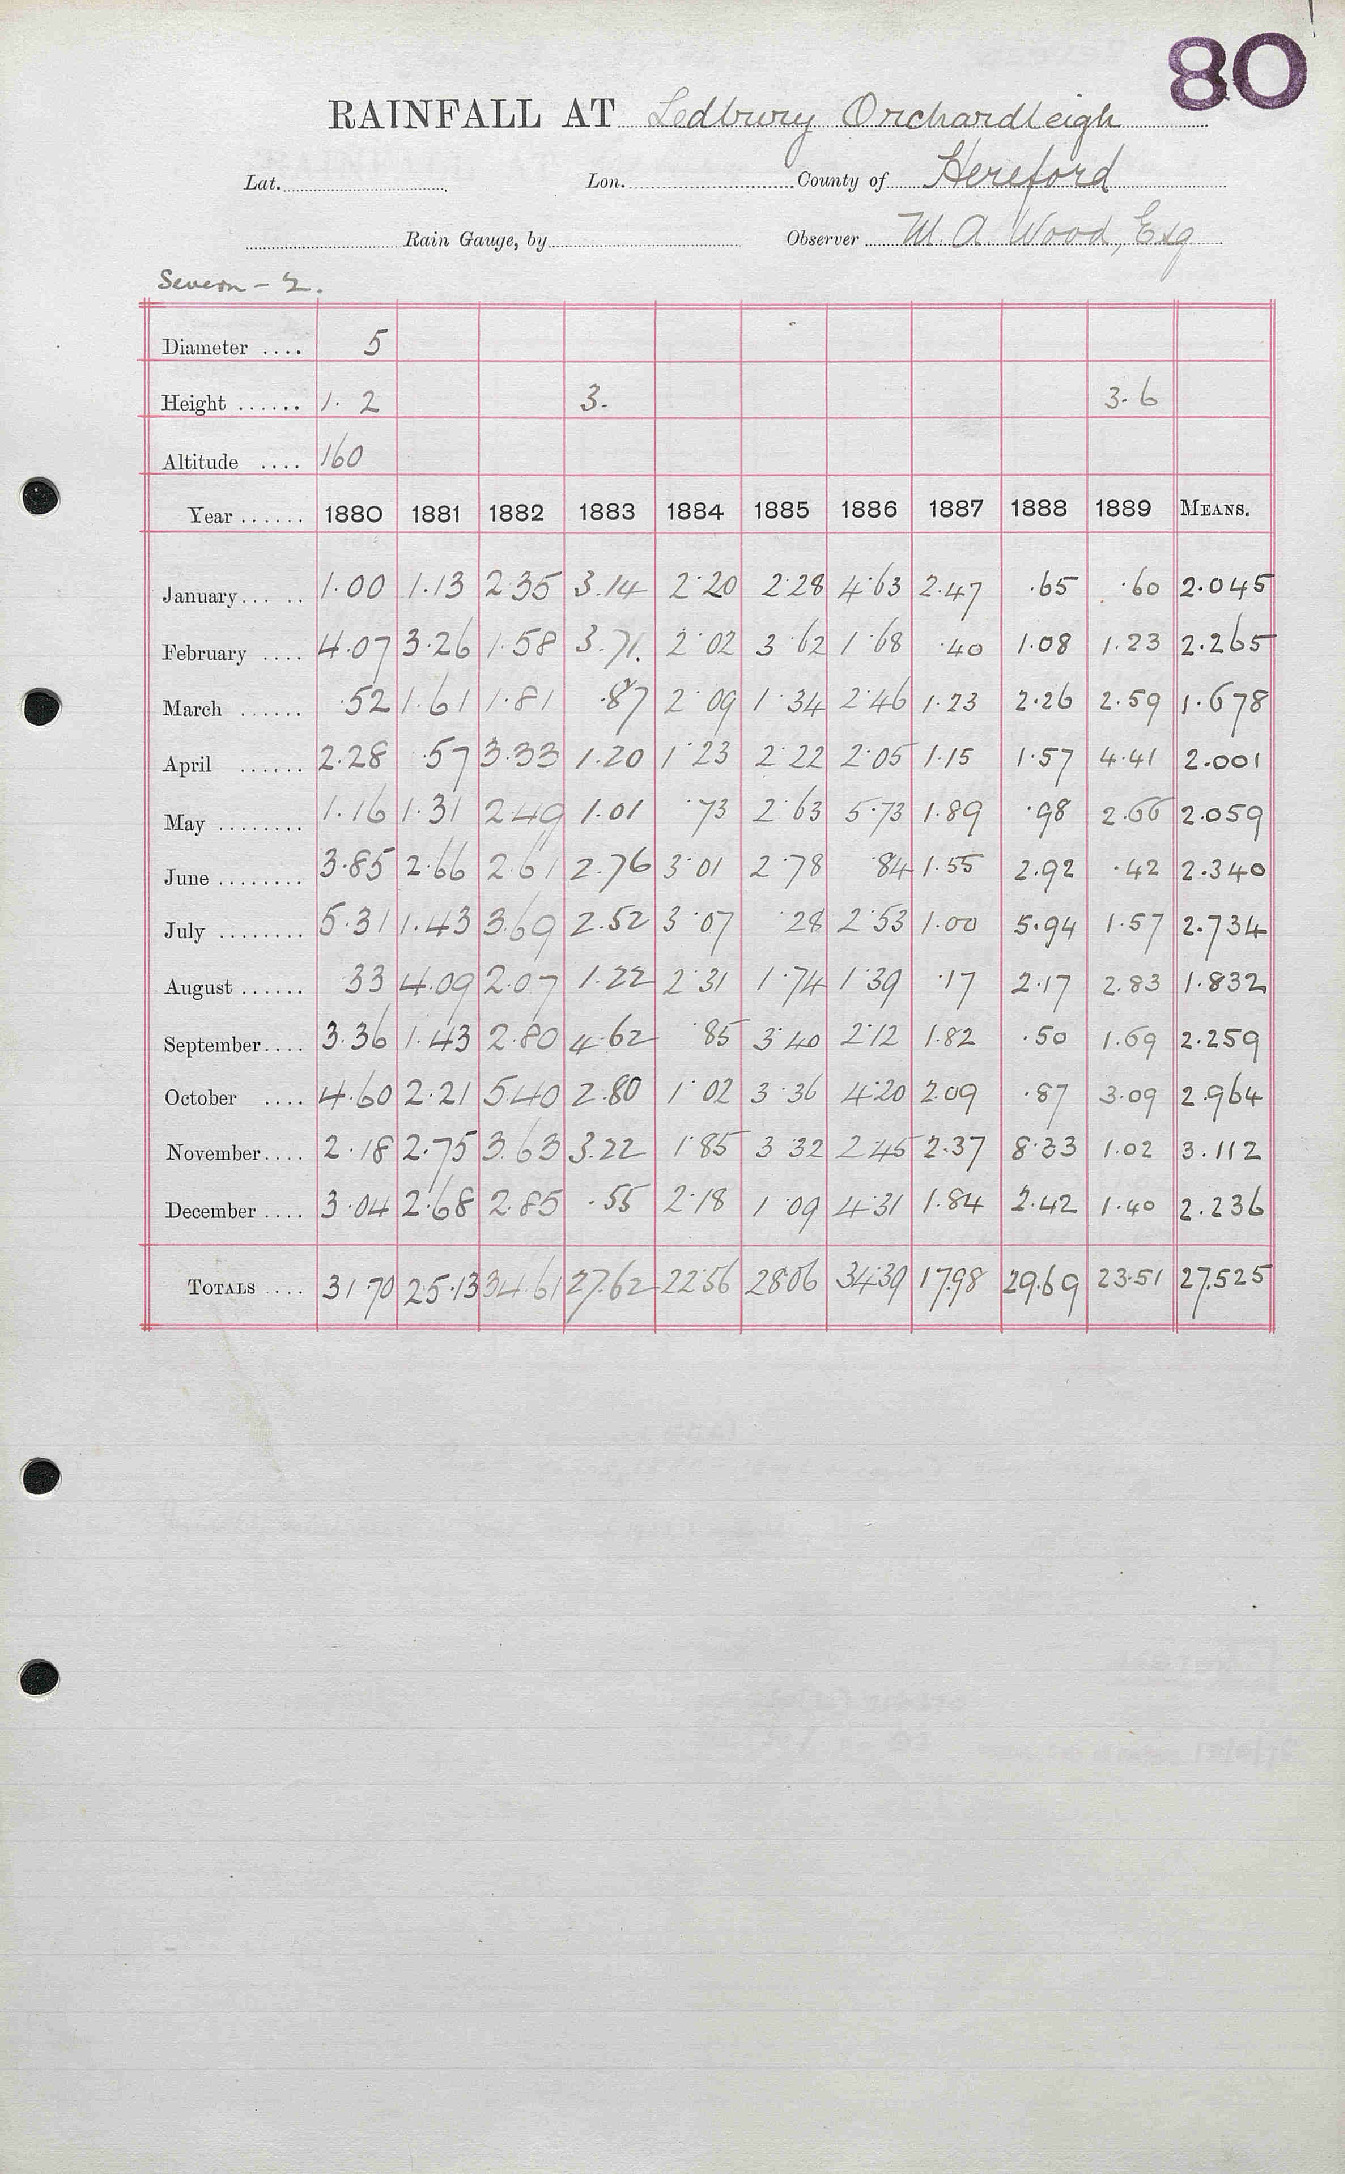 80
RAINFALL AT Ledbury Orchardleigh
Lat. Lon. County of Hereford
Rain Gauge, by Observer M. A. Wood, Esq
Severn - 2.
Diameter .... 5
Height ...... 1. 2 3. 3.6
Altitude .... 160
Year ...... 1880 1881 1882 1883 1884 1885 1886 1887 1888 1889 MEANS.
January... .. 1.00 1.13 2.35 3.14 2.20 2.28 4.63 2.47 .65 .60 2.045
February .... 4.07 3.26 1.58 3.71 2.02 3.62 1.68 .40 1.08 1.23 2.265
March ...... .52 1.61 1.81 .87 2.09 1.34 2.46 1.23 2.26 2.59 1.678
April ...... 2.28 .57 3.33 1.20 1.23 2.22 2.05 1.15 1.57 4.41 2.001
May ........ 1.16 1.31 2.49 1.01 .73 2.63 5.73 1.89 .98 2.66 2.059
June ........ 3.85 2.66 2.61 2.76 3.01 2.78 .84 1.55 2.92 .42 2.340
July ........ 5.31 1.43 3.69 2.52 3.07 .28 2.53 1.00 5.94 1.57 2.734
August ...... .33 4.09 2.07 1.22 2.31 1.74 1.39 .17 2.17 2.83 1.832
September.... 3.36 1.43 2.80 4.62 .85 3.40 2.12 1.82 .50 1.69 2.259
October .... 4.60 2.21 5.40 2.80 1.02 3.36 4.20 2.09 .87 3.09 2.964
November.... 2.18 2.75 3.63 3.22 1.85 3.32 2.45 2.37 8.33 1.02 3.112
December .... 3.04 2.68 2.85 .55 2.18 1.09 4.31 1.84 2.42 1.40 2.236
TOTALS .... 31.70 25.13 34.61 27.62 22.56 28.06 34.39 17.98 29.69 23.51 27.525